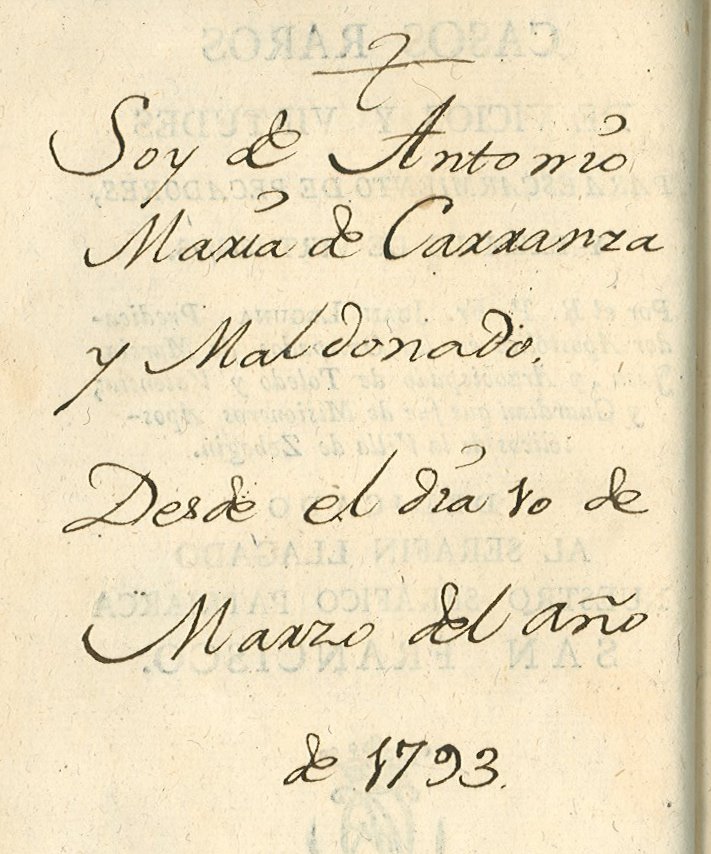 Soy de Antonio
María de Carranza
y Maldonado.
Desde el día 10 de
Marzo del año
de 1793.